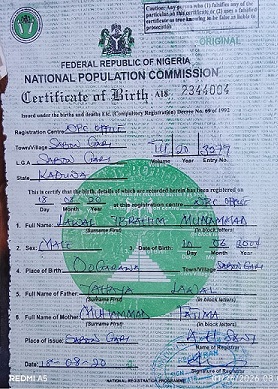 Caution: Any person who (1) falsifies any of the
particulars on this certificate or (2) uses a falsified
certificate as true knowing it to be false is liable to
prosecution
ORIGINAL
FEDERAL REPUBLIC OF NIGERIA
NATIONAL POPULATION COMMISSION
Certificate of Birth A18 2344004
Issued under the births and deaths Etc. (Compulsory Registration) Decree No. 69 of 1992
Registration Centre NPC OFFICE
Town/Village SABON GARI
Volume Year Entry No.
III 20 3079
L.G.A SABON GARI
State KADUNA
This is to certify that the birth, details of which are recorded herein has been registered on
18 08 20 NPC OFFICE
Day Month Year at this registration centre
1. Full Name: LAWAL IBRAHIM MUHAMMAD
(Surname First) (in block letters)
2. Sex: MALE 3. Date of Birth:
Day Month Year
4. Place of Birth Town/Village SABON GARI
5. Full Name of Father LAWAL
(Surname First) (in block letters)
6. Full Name of Mother MUHAMMAD FATIMA
(Surname First) (in block letters)
Place of Issue: SABON GARI
Name of Registrar
Date: 18-08-20
Signature of Registrar
NATIONAL REGISTRATION PROGRAMME
REDMI A5